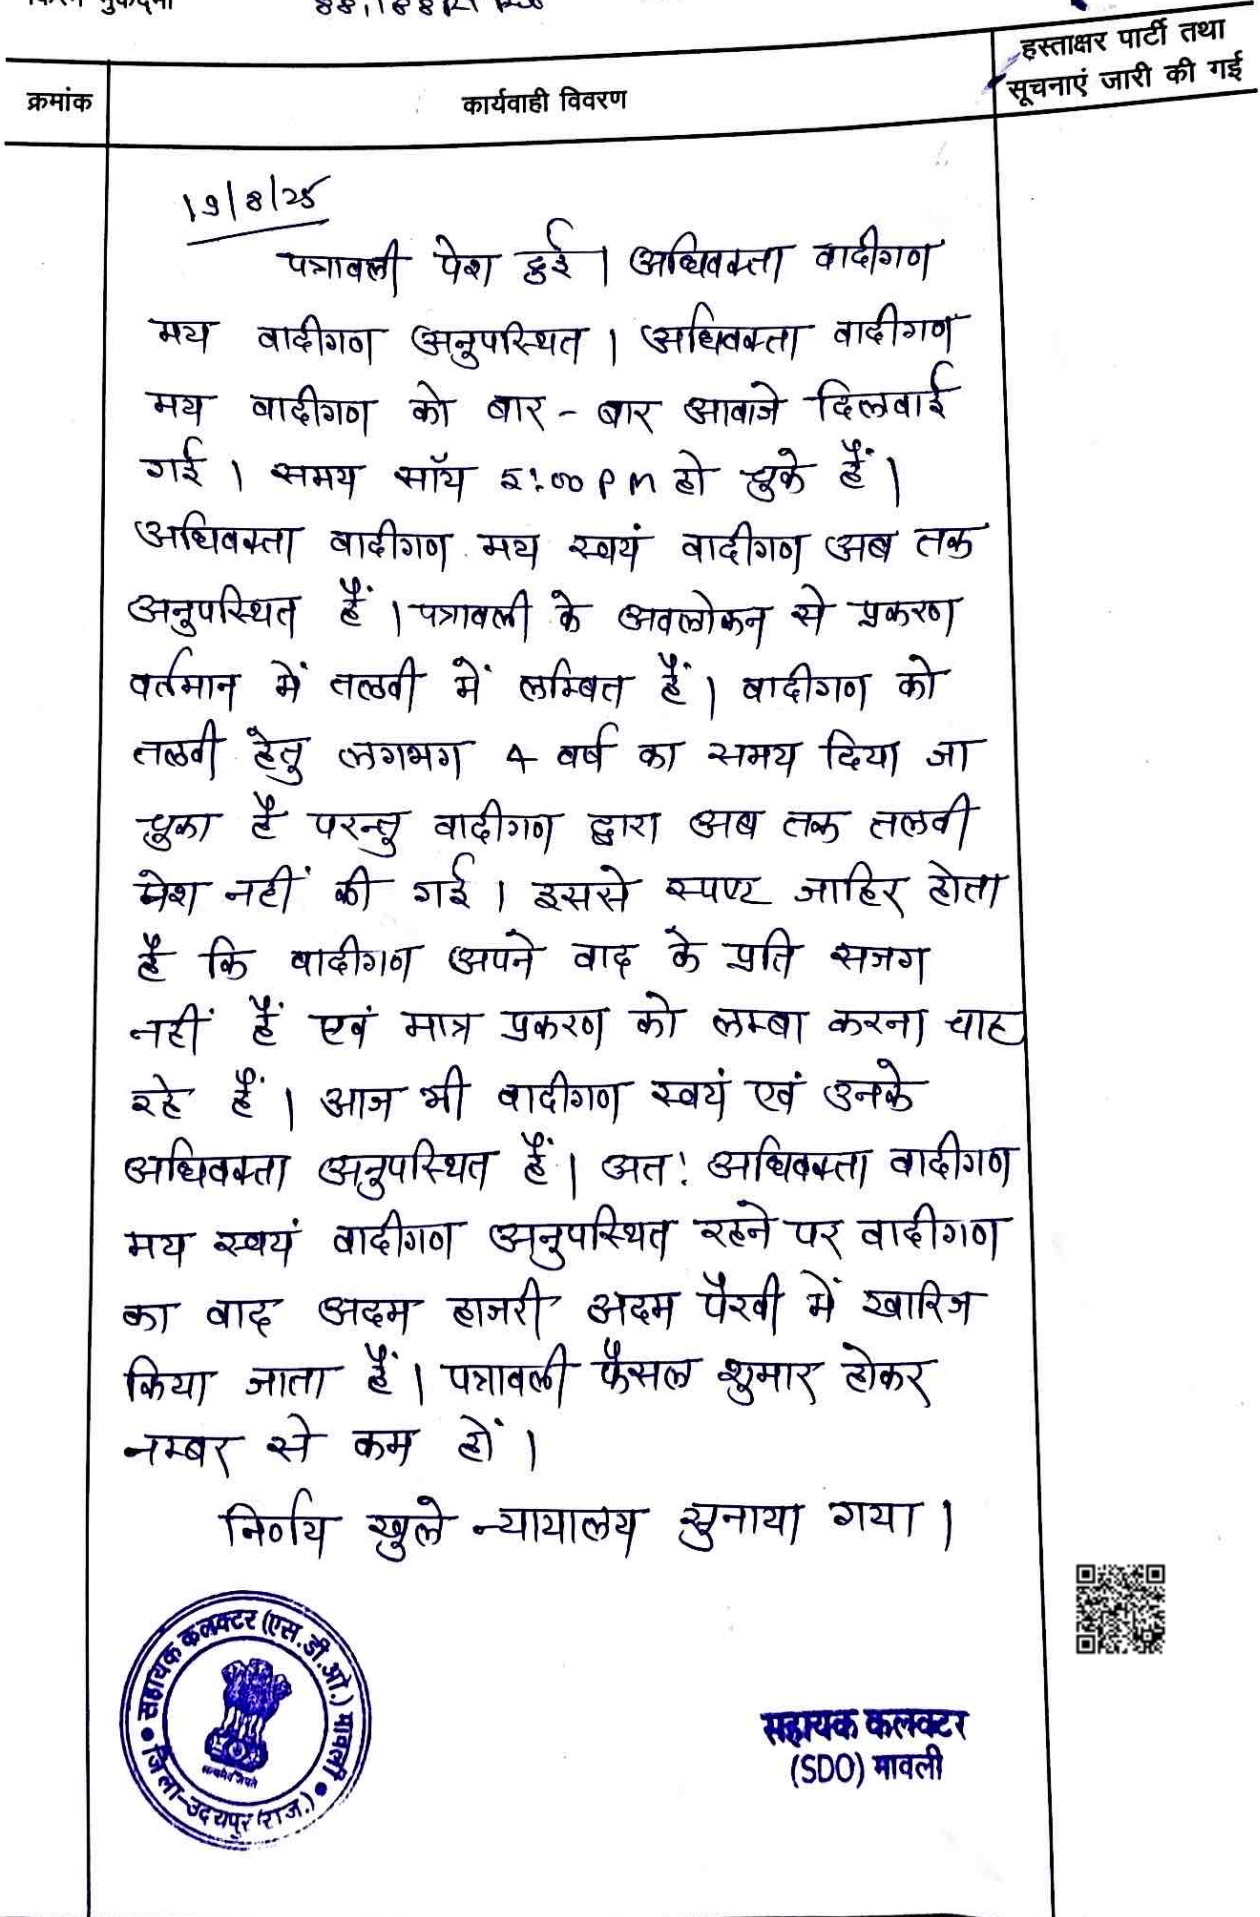 88,188
हस्ताक्षर पार्टी तथा
सूचनाएं जारी की गई
क्रमांक
कार्यवाही विवरण
19/8/25
पत्रावली पेश हुई। अधिवक्ता वादीगण
मय वादीगण अनुपस्थित। अधिवक्ता वादीगण
मय वादीगण को बार-बार आवाजे दिलवाई
गई। समय सॉय 5:00 PM हो चुके हैं।
अधिवक्ता वादीगण मय स्वयं वादीगण अब तक
अनुपस्थित हैं। पत्रावली के अवलोकन से प्रकरण
वर्तमान में तलवी में लम्बित हैं। वादीगण को
तलवी हेतु लगभग 4 वर्ष का समय दिया जा
चुका है परन्तु वादीगण द्वारा अब तक तलवी
पेश नहीं की गई। इससे स्पष्ट जाहिर होता
है कि वादीगण अपने वाद के प्रति सजग
नहीं हैं एवं मात्र प्रकरण को लम्बा करना चाह
रहे हैं। आज भी वादीगण स्वयं एवं उनके
अधिवक्ता अनुपस्थित हैं। अत: अधिवक्ता वादीगण
मय स्वयं वादीगण अनुपस्थित रहने पर वादीगण
का वाद अदम हाजरी अदम पैरवी में खारिज
किया जाता हैं। पत्रावली फैसल शुमार होकर
नम्बर से कम हों।
निर्णय खुले न्यायालय सुनाया गया।
सहायक कलक्टर (एस.डी.ओ.) मावली
जिला-उदयपुर (राज.)
सत्यमेव जयते
सहायक कलक्टर
(SDO) मावली